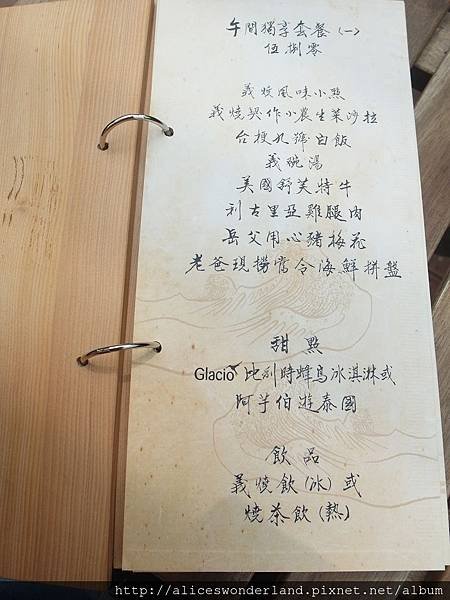 午間獨享套餐〈一〉
伍捌零
義燒風味小點
義燒契作小農生菜沙拉
台梗九號白飯
義碗湯
美國舒芙特牛
利古里亞雞腿肉
岳父用心豬梅花
老爸現撈當令海鮮拼盤
甜點
Glacio 比利時蜂鳥冰淇淋或
阿芋伯遊泰國
飲品
義燒飲(冰)或
燒茶飲(熱)
http://aliceswonderland.pixnet.net/album